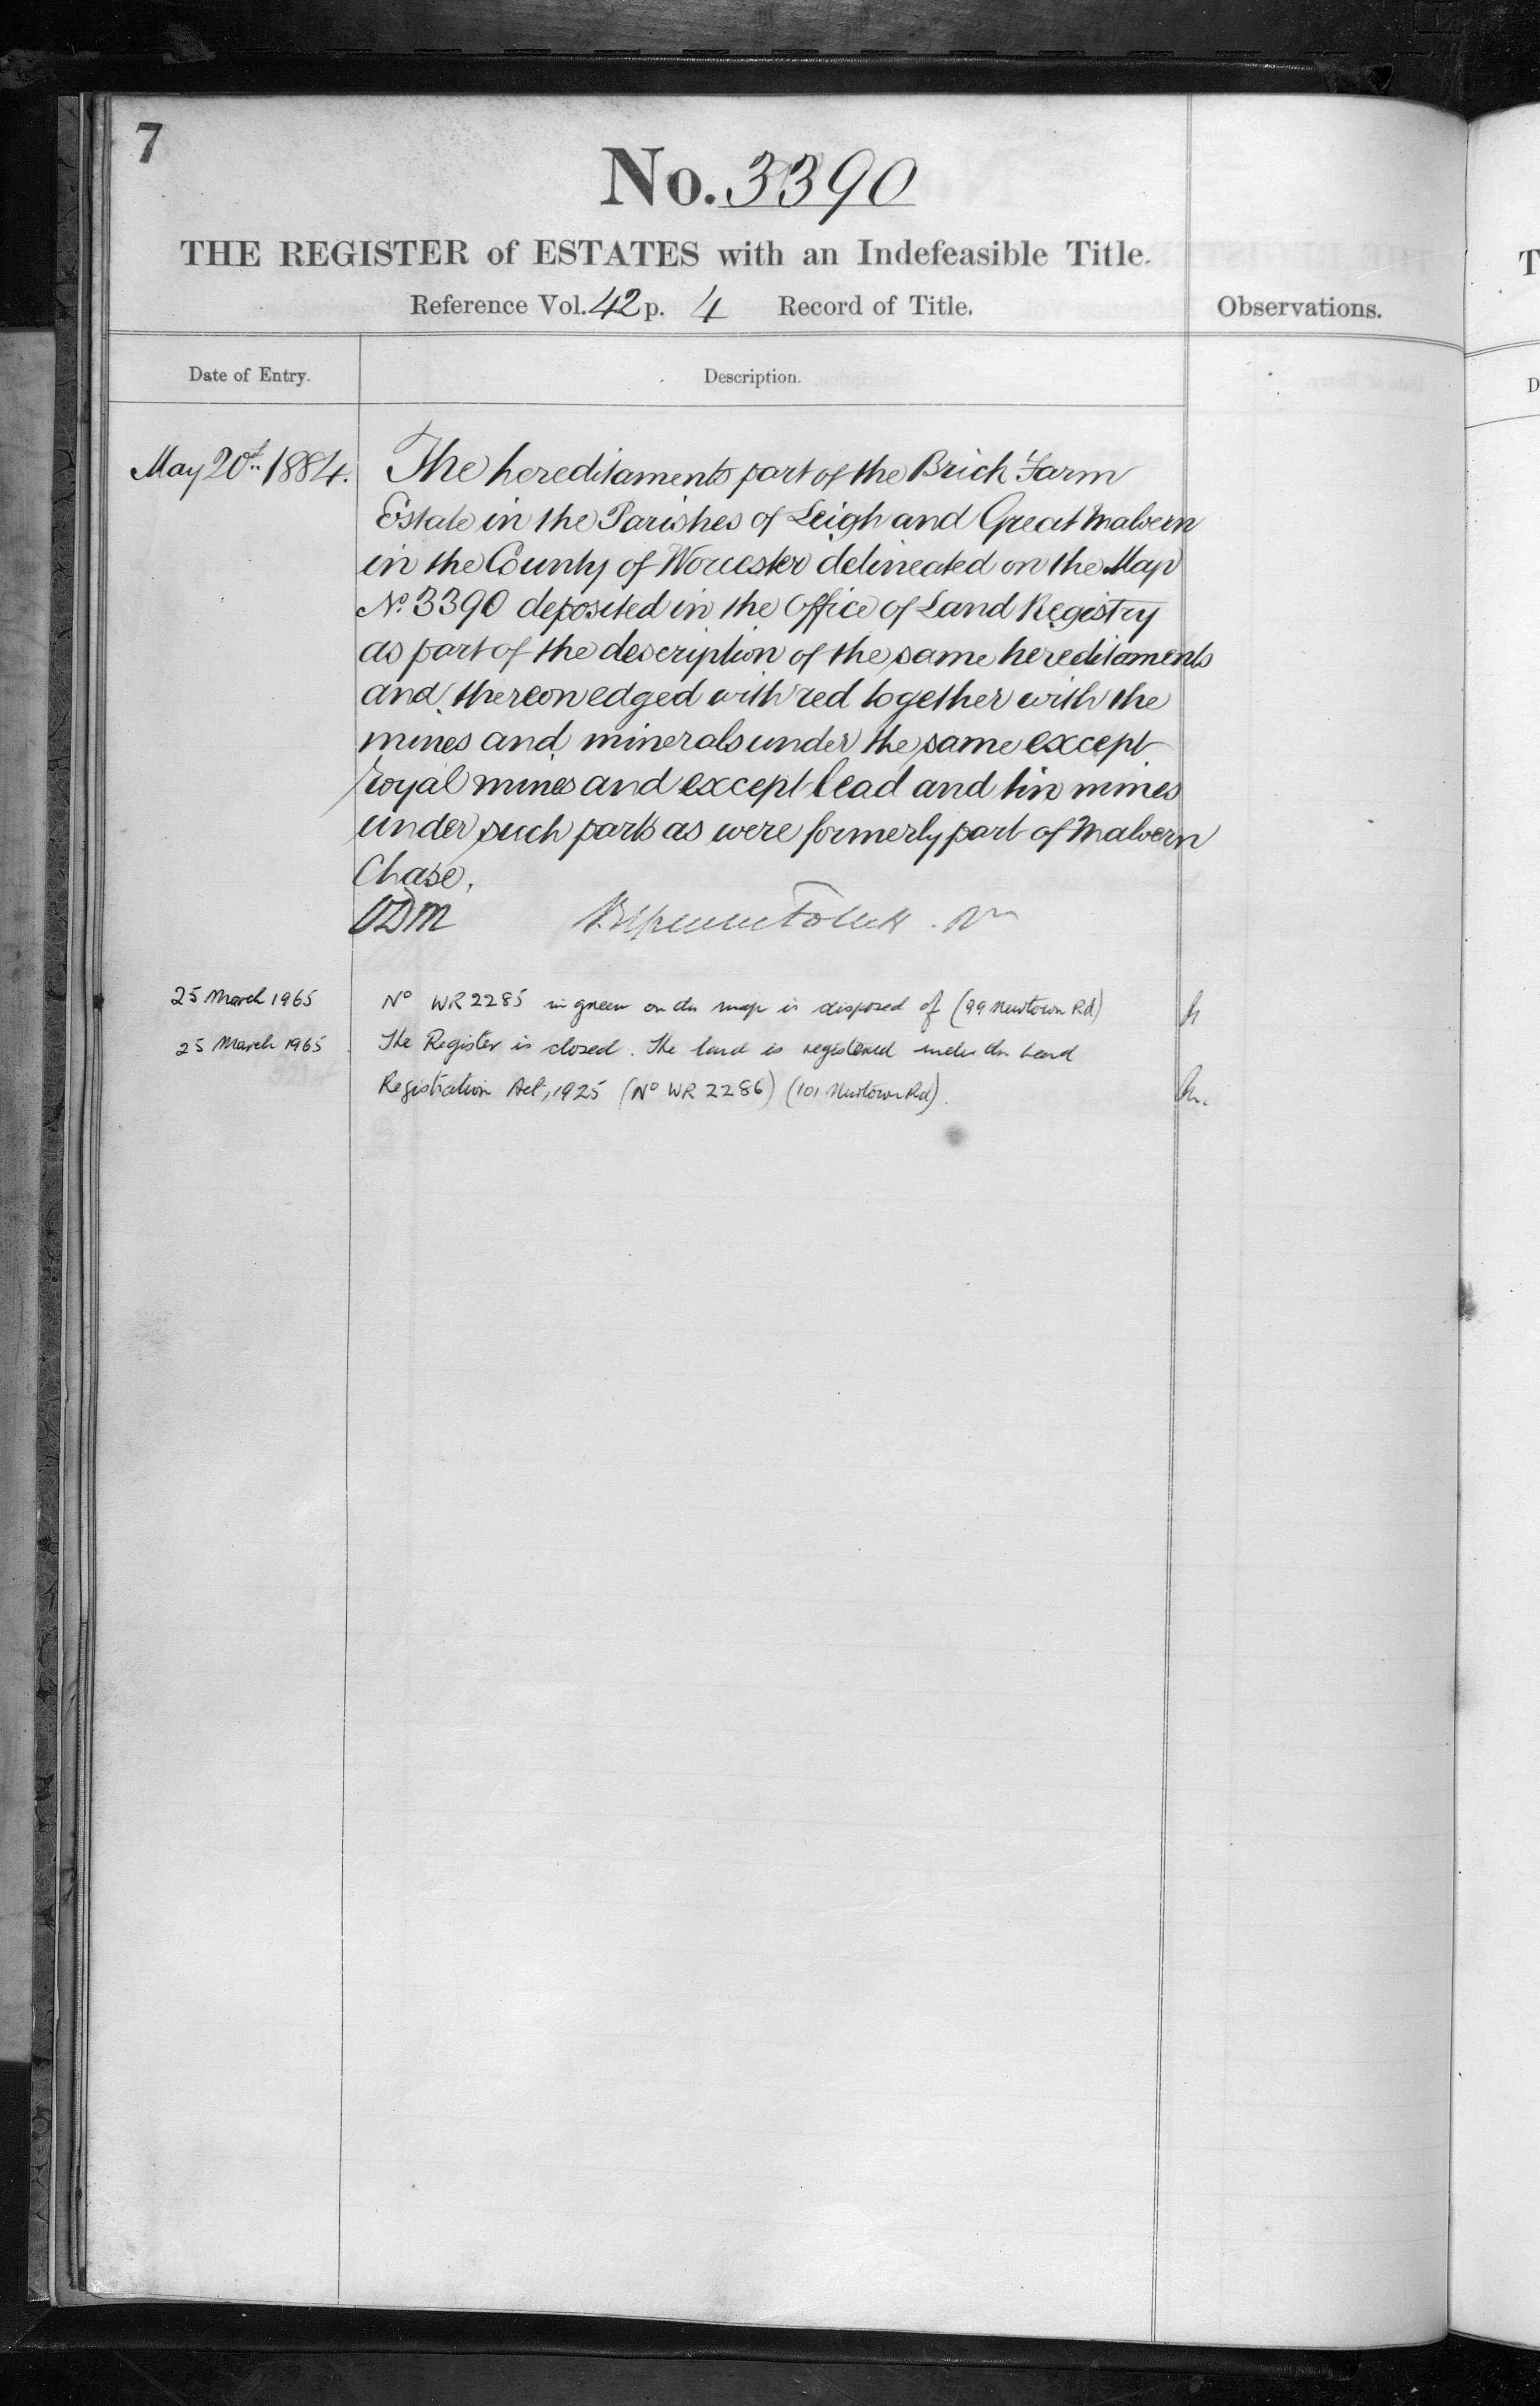 7
No. 3390
THE REGISTER of ESTATES with an Indefeasible Title.
Reference Vol. 42 p. 4 Record of Title.
Observations.
Date of Entry.
Description.
May 20th 1884.
The hereditaments part of the Brick Farm
Estate in the Parishes of Leigh and Great Malvern
in the County of Worcester delineated on the Map
No. 3390 deposited in the Office of Land Registry
as part of the description of the same hereditaments
and thereon edged with red together with the
mines and minerals under the same except
royal mines and except lead and tin mines
under such parts as were formerly part of Malvern
Chase.
25 March 1965
No WR 2285 in green on the map is disposed of (99 Newtown Rd)
25 March 1965
The Register is closed. The land is registered under the Land
Registration Act, 1925 (No WR 2286) (101 Newtown Rd).
T
D